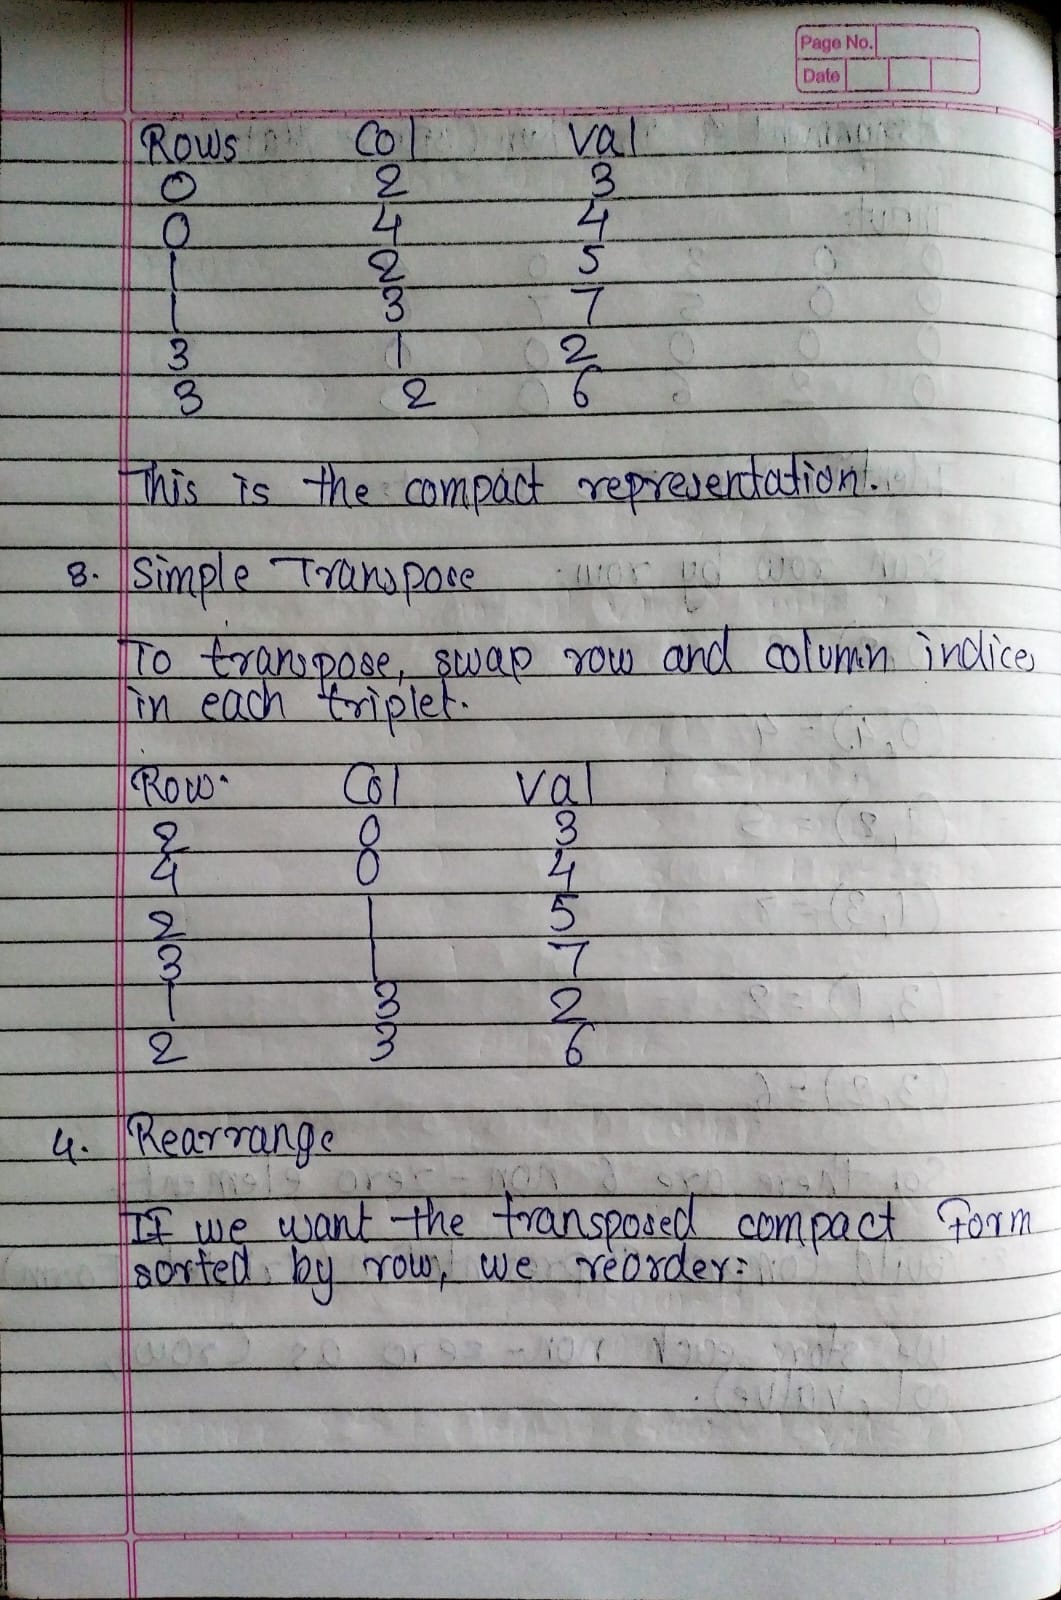 Page No.
Date
Rows Col Val
0 2 3
0 4 4
1 2 5
1 3 7
3 1 2
3 2 6
This is the compact representation.
3. Simple Transpose
To transpose, swap row and column indices
in each triplet.
Row Col Val
2 0 3
4 0 4
2 1 5
3 1 7
1 3 2
2 3 6
4. Rearrange
If we want the transposed compact form
sorted by row, we reorder: